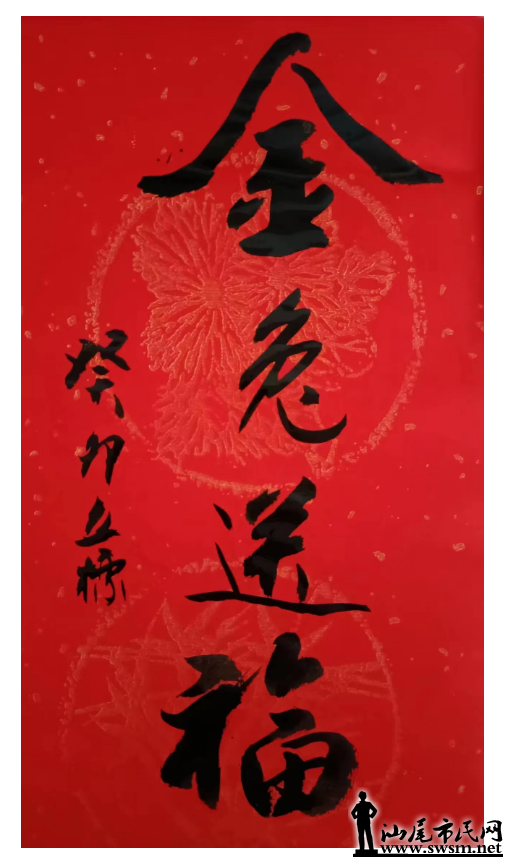 金兔送福
癸卯立標
汕尾市民网
www.swsm.net